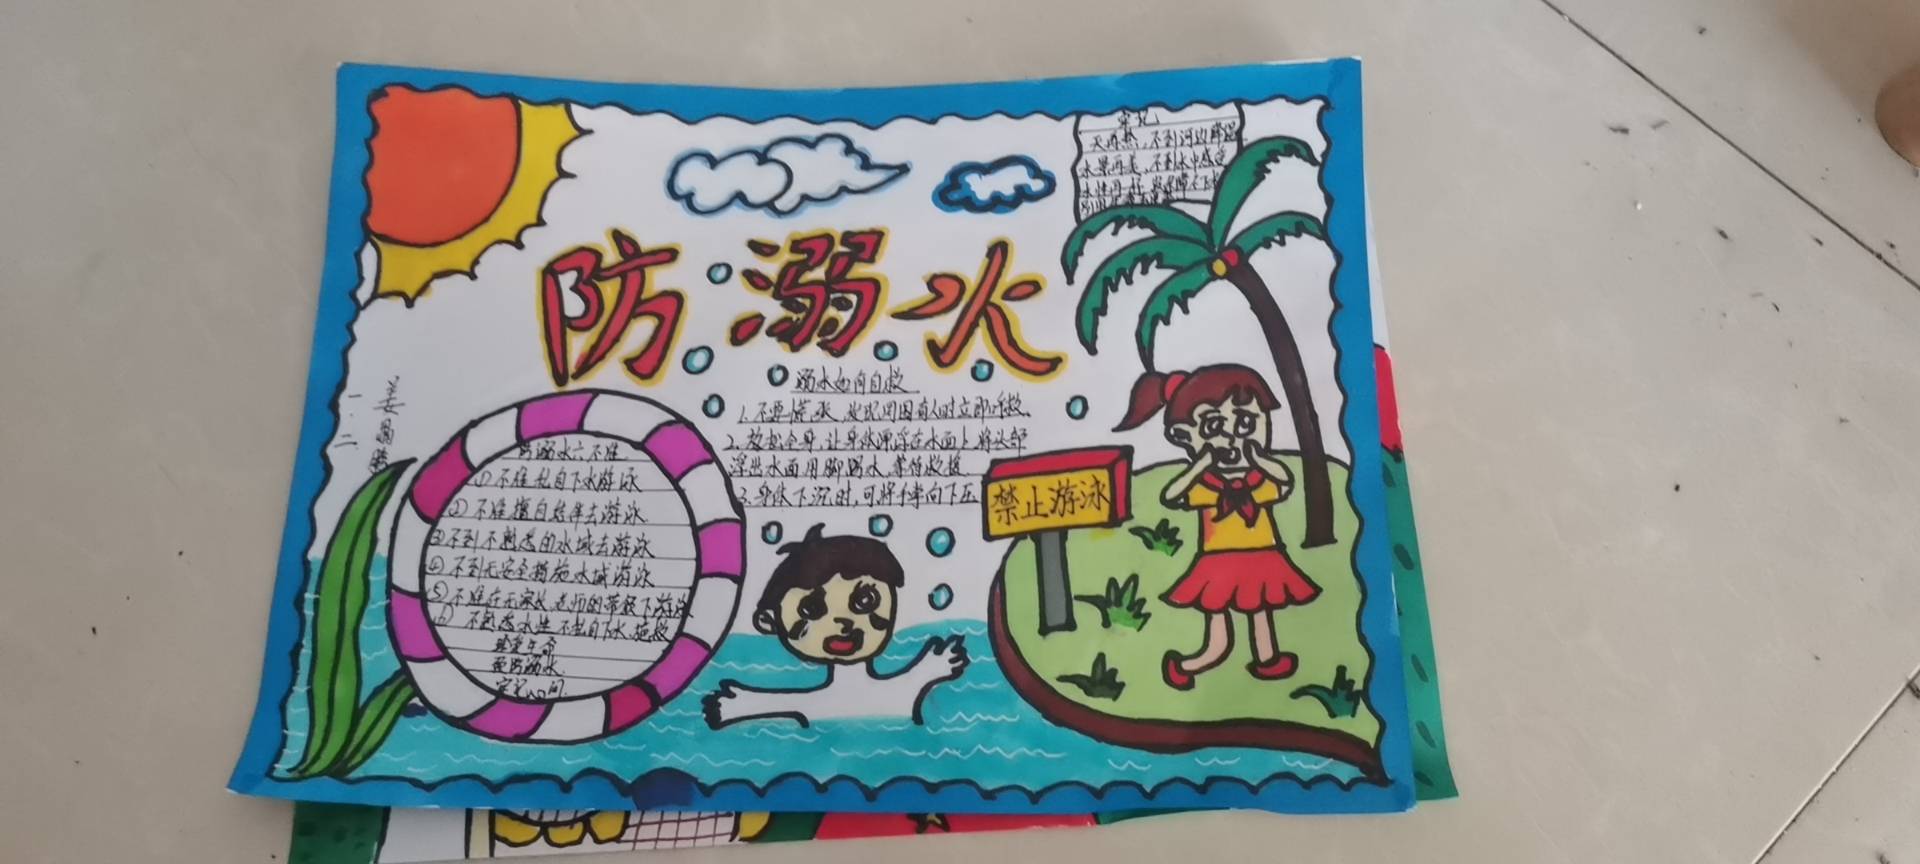 防溺水
牢记
天再热,不到河边降温
水景再美,不到水中感受
溺水如何自救
1.不要慌张,发现周围有人时立即呼救、
2.放松全身,让身体漂浮在水面上,将头部
浮出水面用脚踢水,等待救援、
3.身体下沉时,可将手掌向下压
禁止游泳
防溺水六不准
①不准私自下水游泳
②不准擅自结伴去游泳
③不到不熟悉的水域去游泳
④不到无安全措施水域游泳
⑤不准在无家长老师的带领下游泳
⑥不熟悉水性不私自下水施救
珍爱生命
严防溺水
牢记心间